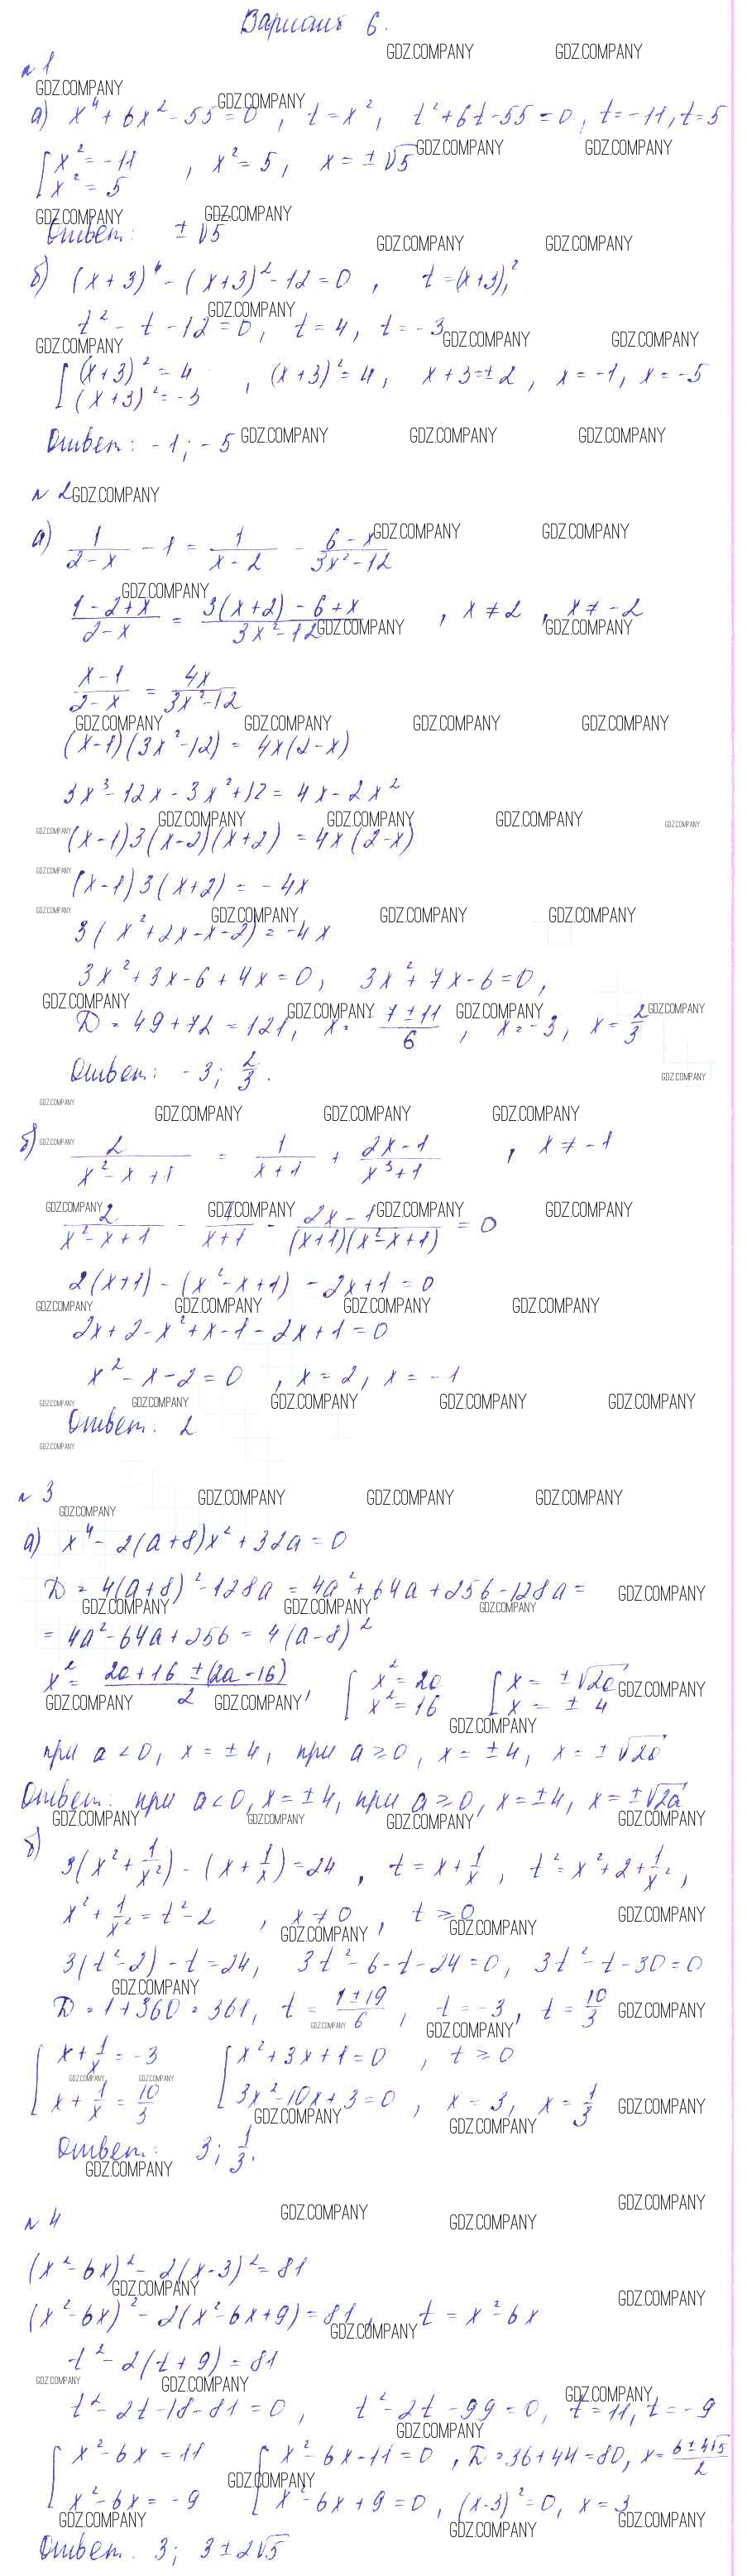 Вариант 6.
№1
а) x⁴ + 6x² - 55 = 0, t = x², t² + 6t - 55 = 0, t = -11, t = 5
[ x² = -11
x² = 5 , x² = 5, x = ±√5
Ответ: ±√5
б) (x+3)⁴ - (x+3)² - 12 = 0, t = (x+3)²,
t² - t - 12 = 0, t = 4, t = -3
[ (x+3)² = 4
(x+3)² = -3 , (x+3)² = 4, x+3 = ±2, x = -1, x = -5
Ответ: -1; -5
№2
а) 1/(2-x) - 1 = 1/(x-2) - (6-x)/(3x²-12)
(1-2+x)/(2-x) = (3(x+2)-6+x)/(3x²-12), x ≠ 2, x ≠ -2
(x-1)/(2-x) = 4x/(3x²-12)
(x-1)(3x²-12) = 4x(2-x)
3x³ - 12x - 3x² + 12 = 4x - 2x²
(x-1)3(x-2)(x+2) = 4x(2-x)
(x-1)3(x+2) = -4x
3(x²+2x-x-2) = -4x
3x² + 3x - 6 + 4x = 0, 3x² + 7x - 6 = 0,
D = 49 + 72 = 121, x = (7±11)/6, x = -3, x = 2/3
Ответ: -3; 2/3.
б) 2/(x²-x+1) = 1/(x+1) + (2x-1)/(x³+1), x ≠ -1
2/(x²-x+1) - 1/(x+1) - (2x-1)/((x+1)(x²-x+1)) = 0
2(x+1) - (x²-x+1) - 2x+1 = 0
2x+2-x²+x-1-2x+1=0
x² - x - 2 = 0, x = 2, x = -1
Ответ: 2
№3
а) x⁴ - 2(a+8)x² + 32a = 0
D = 4(a+8)² - 128a = 4a² + 64a + 256 - 128a =
= 4a² - 64a + 256 = 4(a-8)²
x² = (2a+16±(2a-16))/2, [ x² = 2a
x² = 16 [ x = ±√2a
x = ±4
при a < 0, x = ±4, при a ≥ 0, x = ±4, x = ±√2a
Ответ: при a < 0, x = ±4, при a ≥ 0, x = ±4, x = ±√2a
б) 3(x² + 1/x²) - (x + 1/x) = 24, t = x + 1/x, t² = x² + 2 + 1/x²,
x² + 1/x² = t² - 2, x ≠ 0, t ≥ 0
3(t²-2) - t = 24, 3t² - 6 - t - 24 = 0, 3t² - t - 30 = 0
D = 1 + 360 = 361, t = (1±19)/6, t = -3, t = 10/3
[ x + 1/x = -3
x + 1/x = 10/3 [ x² + 3x + 1 = 0, t ≥ 0
3x² - 10x + 3 = 0, x = 3, x = 1/3
Ответ: 3; 1/3.
№4
(x²-6x)² - 2(x-3)² = 81
(x²-6x)² - 2(x²-6x+9) = 81, t = x² - 6x
t² - 2(t+9) = 81
t² - 2t - 18 - 81 = 0, t² - 2t - 99 = 0, t = 11, t = -9
[ x² - 6x = 11
x² - 6x = -9 [ x² - 6x - 11 = 0, D = 36 + 44 = 80, x = (6±4√5)/2
x² - 6x + 9 = 0, (x-3)² = 0, x = 3
Ответ. 3; 3±2√5
GDZ.COMPANY